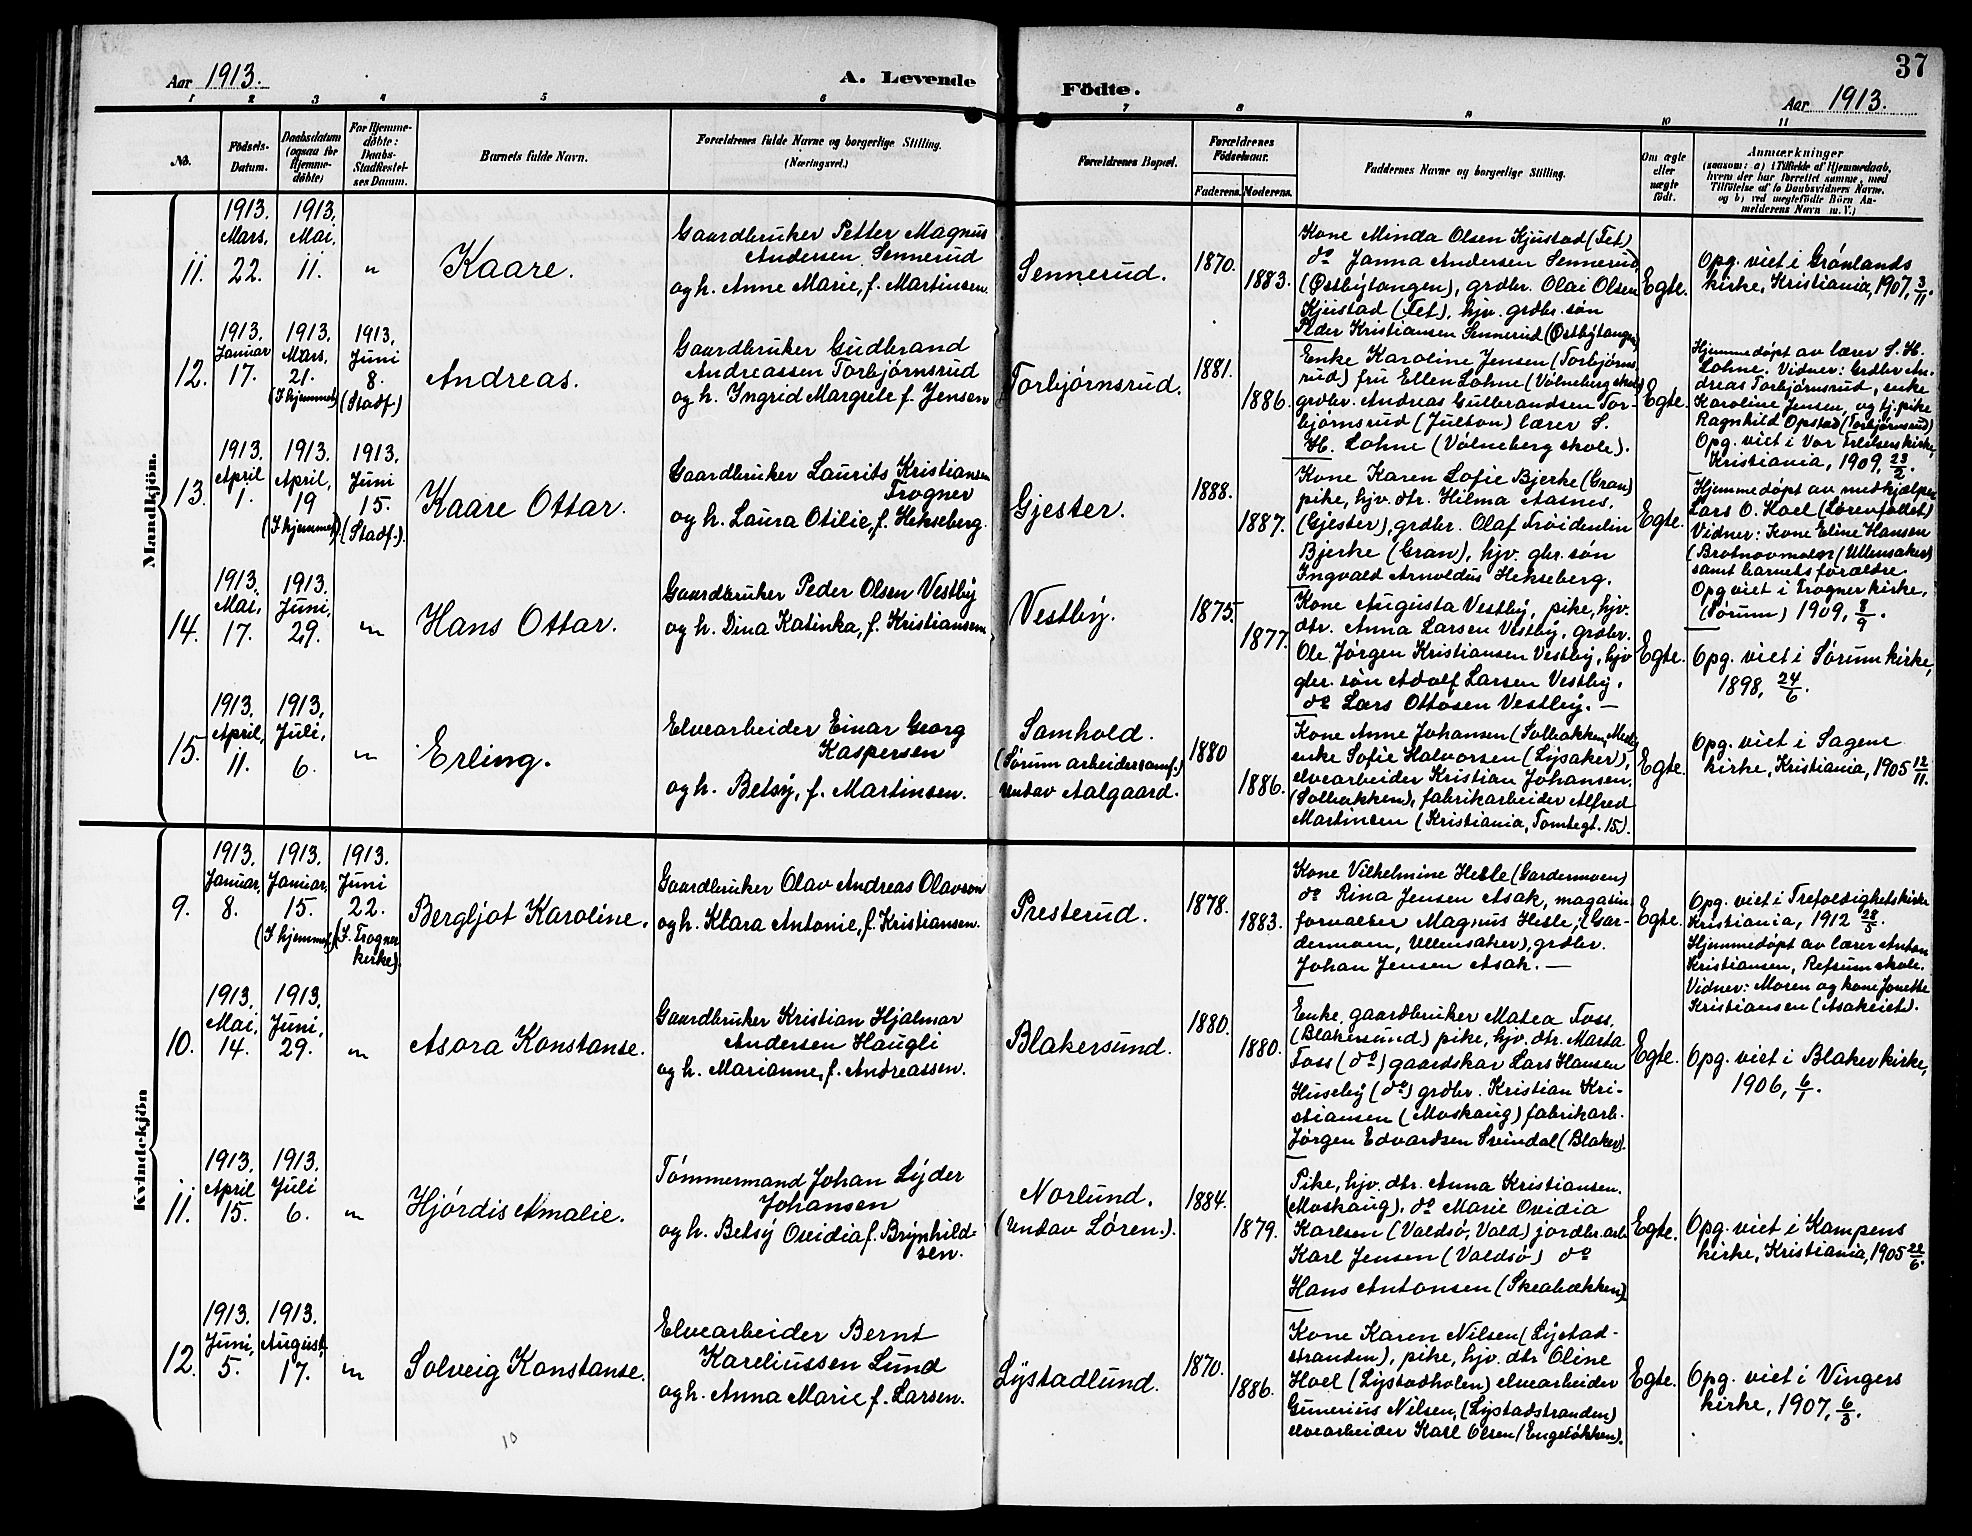 37
Aar 1913.
A. Levende
Födte.
Aar 1913.
1 2 3 4 5 6 7 8 9 10 11
No.
Födsels-
Datum.
Daabsdatum
(ogsaa for
Hjemme-
döbte)
For Hjemme-
döbte:
Daabs-
Stadfæstel-
ses Datum.
Barnets fulde Navn.
Forældrenes fulde Navne og borgerlige Stilling.
(Næringsvei.)
Forældrenes Bopæl.
Forældrenes
Födselsaar.
Faderens. Moderens.
Faddernes Navne og borgerlige Stilling.
Om ægte
eller
uægte
födt.
Anmærkninger
(saasom: a) i Tilfælde af Hjemmedaab,
hvem der har forrettet samme, med
Tilföielse af to Daabsvidners Navne.
og b) ved uægtefödte Börn An-
melderens Navn m. V.)
Mandkjön.
11.
1913.
Mars.
22.
1913.
Mai.
11.
"
Kaare.
Gaardbruker Petter Magnus
Andersen Sennerud
og h. Anne Marie, f. Martinsen.
Sennerud.
1870.
1883.
Kone Minda Olsen Kjustad (Fet)
do Janna Andersen Sennerud
(Østbytangen), grdbr. Olai Olsen
Kjustad (Fet), hjv. grdbr. søn
Peder Kristiansen Sennerud (Østbytangen)
Egte.
Opg. viet i Grønlands
kirke, Kristiania, 1907, 3/11.
12.
1913.
Januar
17.
1913.
Mars.
21.
(I hjemmet)
1913.
Juni
8.
(Stadf.)
Andreas.
Gaardbruker Gudbrand
Andreassen Torbjørnsrud
og h. Ingrid Margrete f. Jensen
Torbjørnsrud.
1881.
1886.
Enke Karoline Jensen (Torbjørns-
rud) fru Ellen Lohne (Vølneberg skole)
grdbr. Andreas Gulbrandsen Tor-
bjørnsrud (Julton) lærer S.
H. Lohne (Vølneberg skole).
Egte.
Hjemmedøpt av lærer S. H.
Lohne. Vidner: Grdbr An-
dreas Torbjørnsrud, enke
Karoline Jensen, og tj. pike
Ragnhild Opstad (Torbjørnsrud)
Opg. viet i Vor Frelsers kirke,
Kristiania, 1909, 23/2.
13.
1913.
April
1.
1913.
April,
19
(I hjemmet)
1913.
Juni
15.
(Stadf.).
Kaare Ottar.
Gaardbruker Laurits Kristiansen
Trogner
og h. Laura Otilie, f. Hekseberg.
Gjester.
1888.
1887.
Kone Karen Sofie Bjerke (Gran)
pike, hjv. dtr. Hilma Aasnes,
(Gjester), grdbr. Olaf Froidenlin
Bjerke (Gran), hjv. gbr. søn
Ingvald Arnoldus Hekseberg.
Egte.
Hjemmedøpt av medhjælper
Lars O. Hoel (Lørenfaldet)
Vidner: Kone Eline Hansen
(Ullensaker)
samt barnets forældre.
Opg viet i Frogner kirke,
(Sørum) 1909, 8/9.
14.
1913.
Mai,
17.
1913.
Juni,
29.
"
Hans Ottar.
Gaardbruker Peder Olsen Vestby
og h. Dina Katinka, f. Kristiansen
Vestby.
1875.
1877.
Kone Augusta Vestby, pike, hjv.
dtr. Anna Larsen Vestby, grdbr.
Ole Jørgen Kristiansen Vestby, hjv
gbr. søn Adolf Larsen Vestby.
do Lars Ottosen Vestby. —
Egte.
Opg. viet i Sørum kirke,
1898, 24/6.
15.
1913.
April,
11.
1913.
Juli,
6.
"
Erling.
Elvearbeider Einar Georg
Kaspersen
og h. Betsy, f. Martinsen.
Samhold.
(Sørum arbeidersamf.)
undav Aalgaard.
1880
1886.
Kone Anne Johansen (Solbakken,
enke Sofie Halvorsen (Lysaker),
elvearbeider Kristian Johansen,
(Solbakken), fabrikarbeider Alfred
Martinsen (Kristiania, Tomtegt. 15).
Egte.
Opg. viet i Sagene
kirke, Kristiania, 1905 12/11.
Kvindekjön
9.
1913.
Januar,
8.
1913.
Januar,
15.
(I hjemmet)
1913.
Juni
22.
(I. Frogner
kirke).
Bergljot Karoline.
Gaardbruker Olav Andreas Olavson
og h. Klara Antonie, f. Kristiansen.
Presterud.
1878.
1883.
Kone Vilhelmine Hesle (Gardermoen)
do Rina Jensen Asak, magasin-
forvalter Magnus Hesle, (Gar-
dermoen, Ullensaker), grdbr.
Johan Jensen Asak. —
Egte.
Opg. viet i Trefoldighetskirke
Kristiania, 1912 28/5.
Hjemmedøpt av lærer Anton
Kristiansen, Refsum skole.
Vidner: Moren og kone Jonette
Kristiansen (Asakeiet).
10.
1913.
Mai,
14.
1913.
Juni,
29.
"
Asora Konstanse.
Gaardbruker Kristian Hjalmar
Andersen Haugli
og h. Marianne, f. Andreassen.
Blakersund.
1880.
1880.
Enke, gaardbruker Matea Foss,
(Blakersund) pike, hjv. dtr. Marta
Foss (do) gaardskar Lars Hansen
Huseby (do) grdbr. Kristian Kri-
stiansen (Moskaug) fabrikarb.
Jørgen Edvardsen Svindal (Blaker).
Egte.
Opg. viet i Blaker kirke,
1906, 6/1.
11.
1913.
April
15.
1913.
Juli
6.
"
Hjørdis Amalie.
Tømmermand Johan Lyder
Johansen
og h. Betsy Ovidia f. Brynhild-
sen.
Norlund.
(undav Løren.).
1884.
1879.
Pike, hjv. dtr. Anna Kristiansen.
(Moskaug), do Marie Ovidia
Karlsen (Valdsø, Vald) jordbr. arb.
Karl Jensen (Valdsø) do
Hans Antonsen (Skeabækken)
Egte.
Opg. viet i Kampens
kirke, Kristiania, 1905 22/6.
12.
1913.
Juni,
5.
1913.
August,
17.
"
Solveig Konstanse.
Elvearbeider Bernt
Kareliussen Lund
og h. Anna Marie f. Larsen.
Lystadlund.
1870.
1886.
Kone Karen Nilsen (Lystad-
stranden), pike, hjv. dtr Oline
Hoel (Lystadholen) elvearbeider
Gunerius Nilsen, (Lystadstranden)
elvearbeider Karl Olsen (Engeløkken).
Egte.
Opg. viet i Vingers
kirke, 1907, 6/3.
10